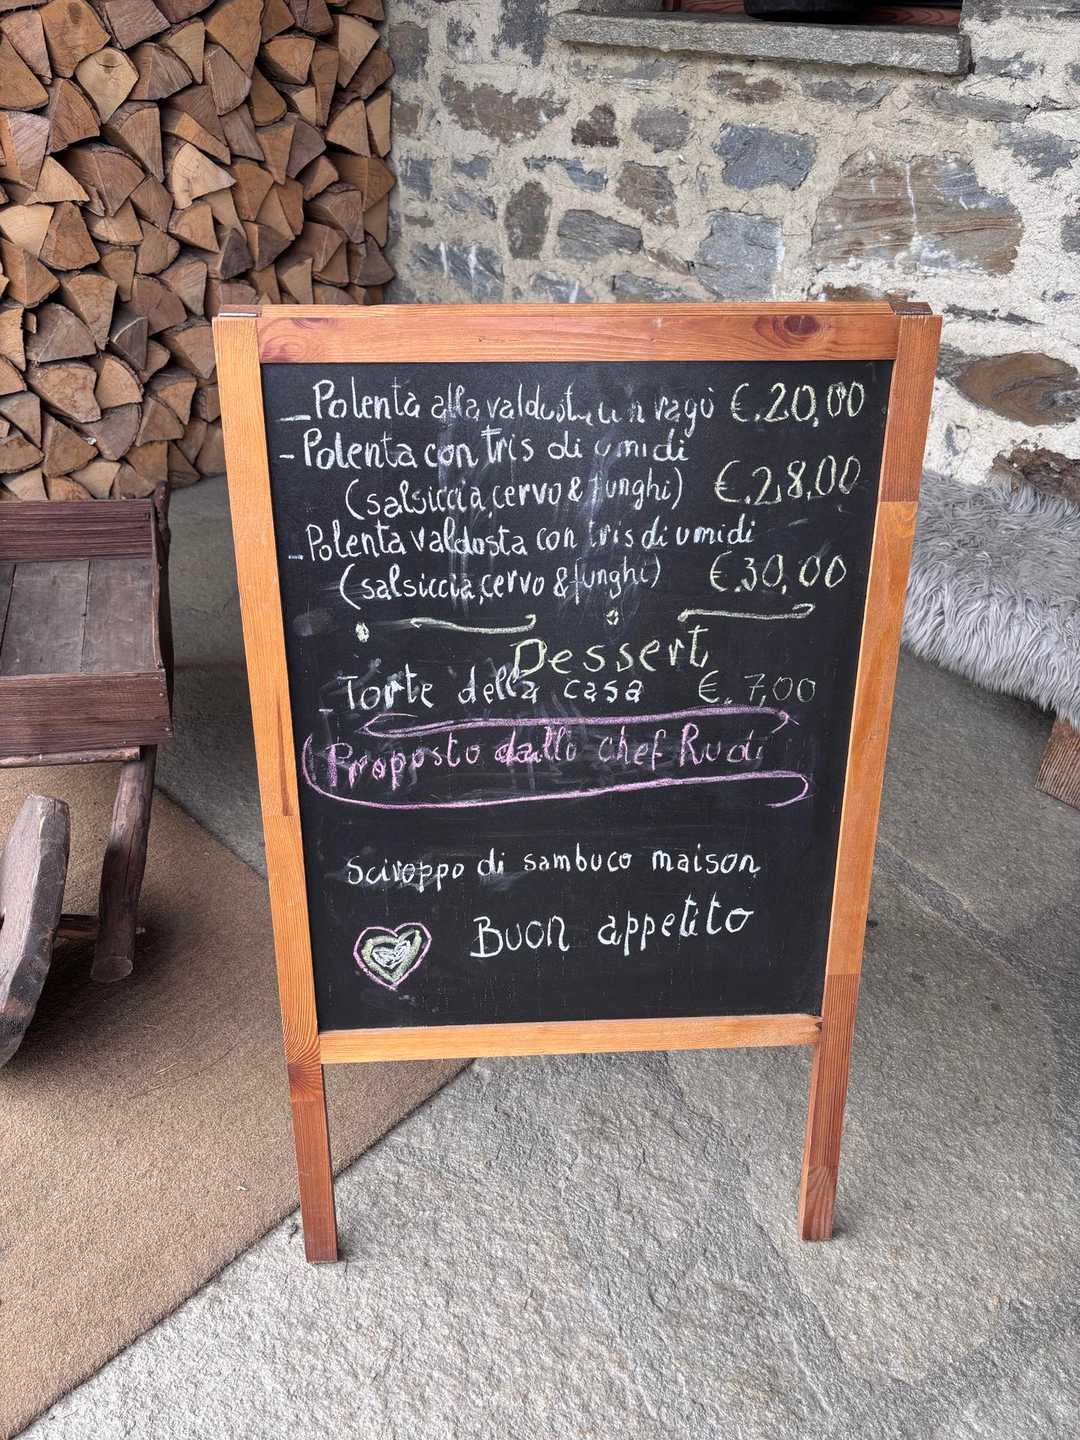 - Polenta alla valdosta con ragù €.20,00
- Polenta con tris di umidi
(salsiccia, cervo & funghi) €.28,00
- Polenta valdosta con tris di umidi
(salsiccia, cervo & funghi) €.30,00
Dessert
- Torte della casa €.7,00
Proposto dallo chef Rudi
Sciroppo di sambuco maison
Buon appetito